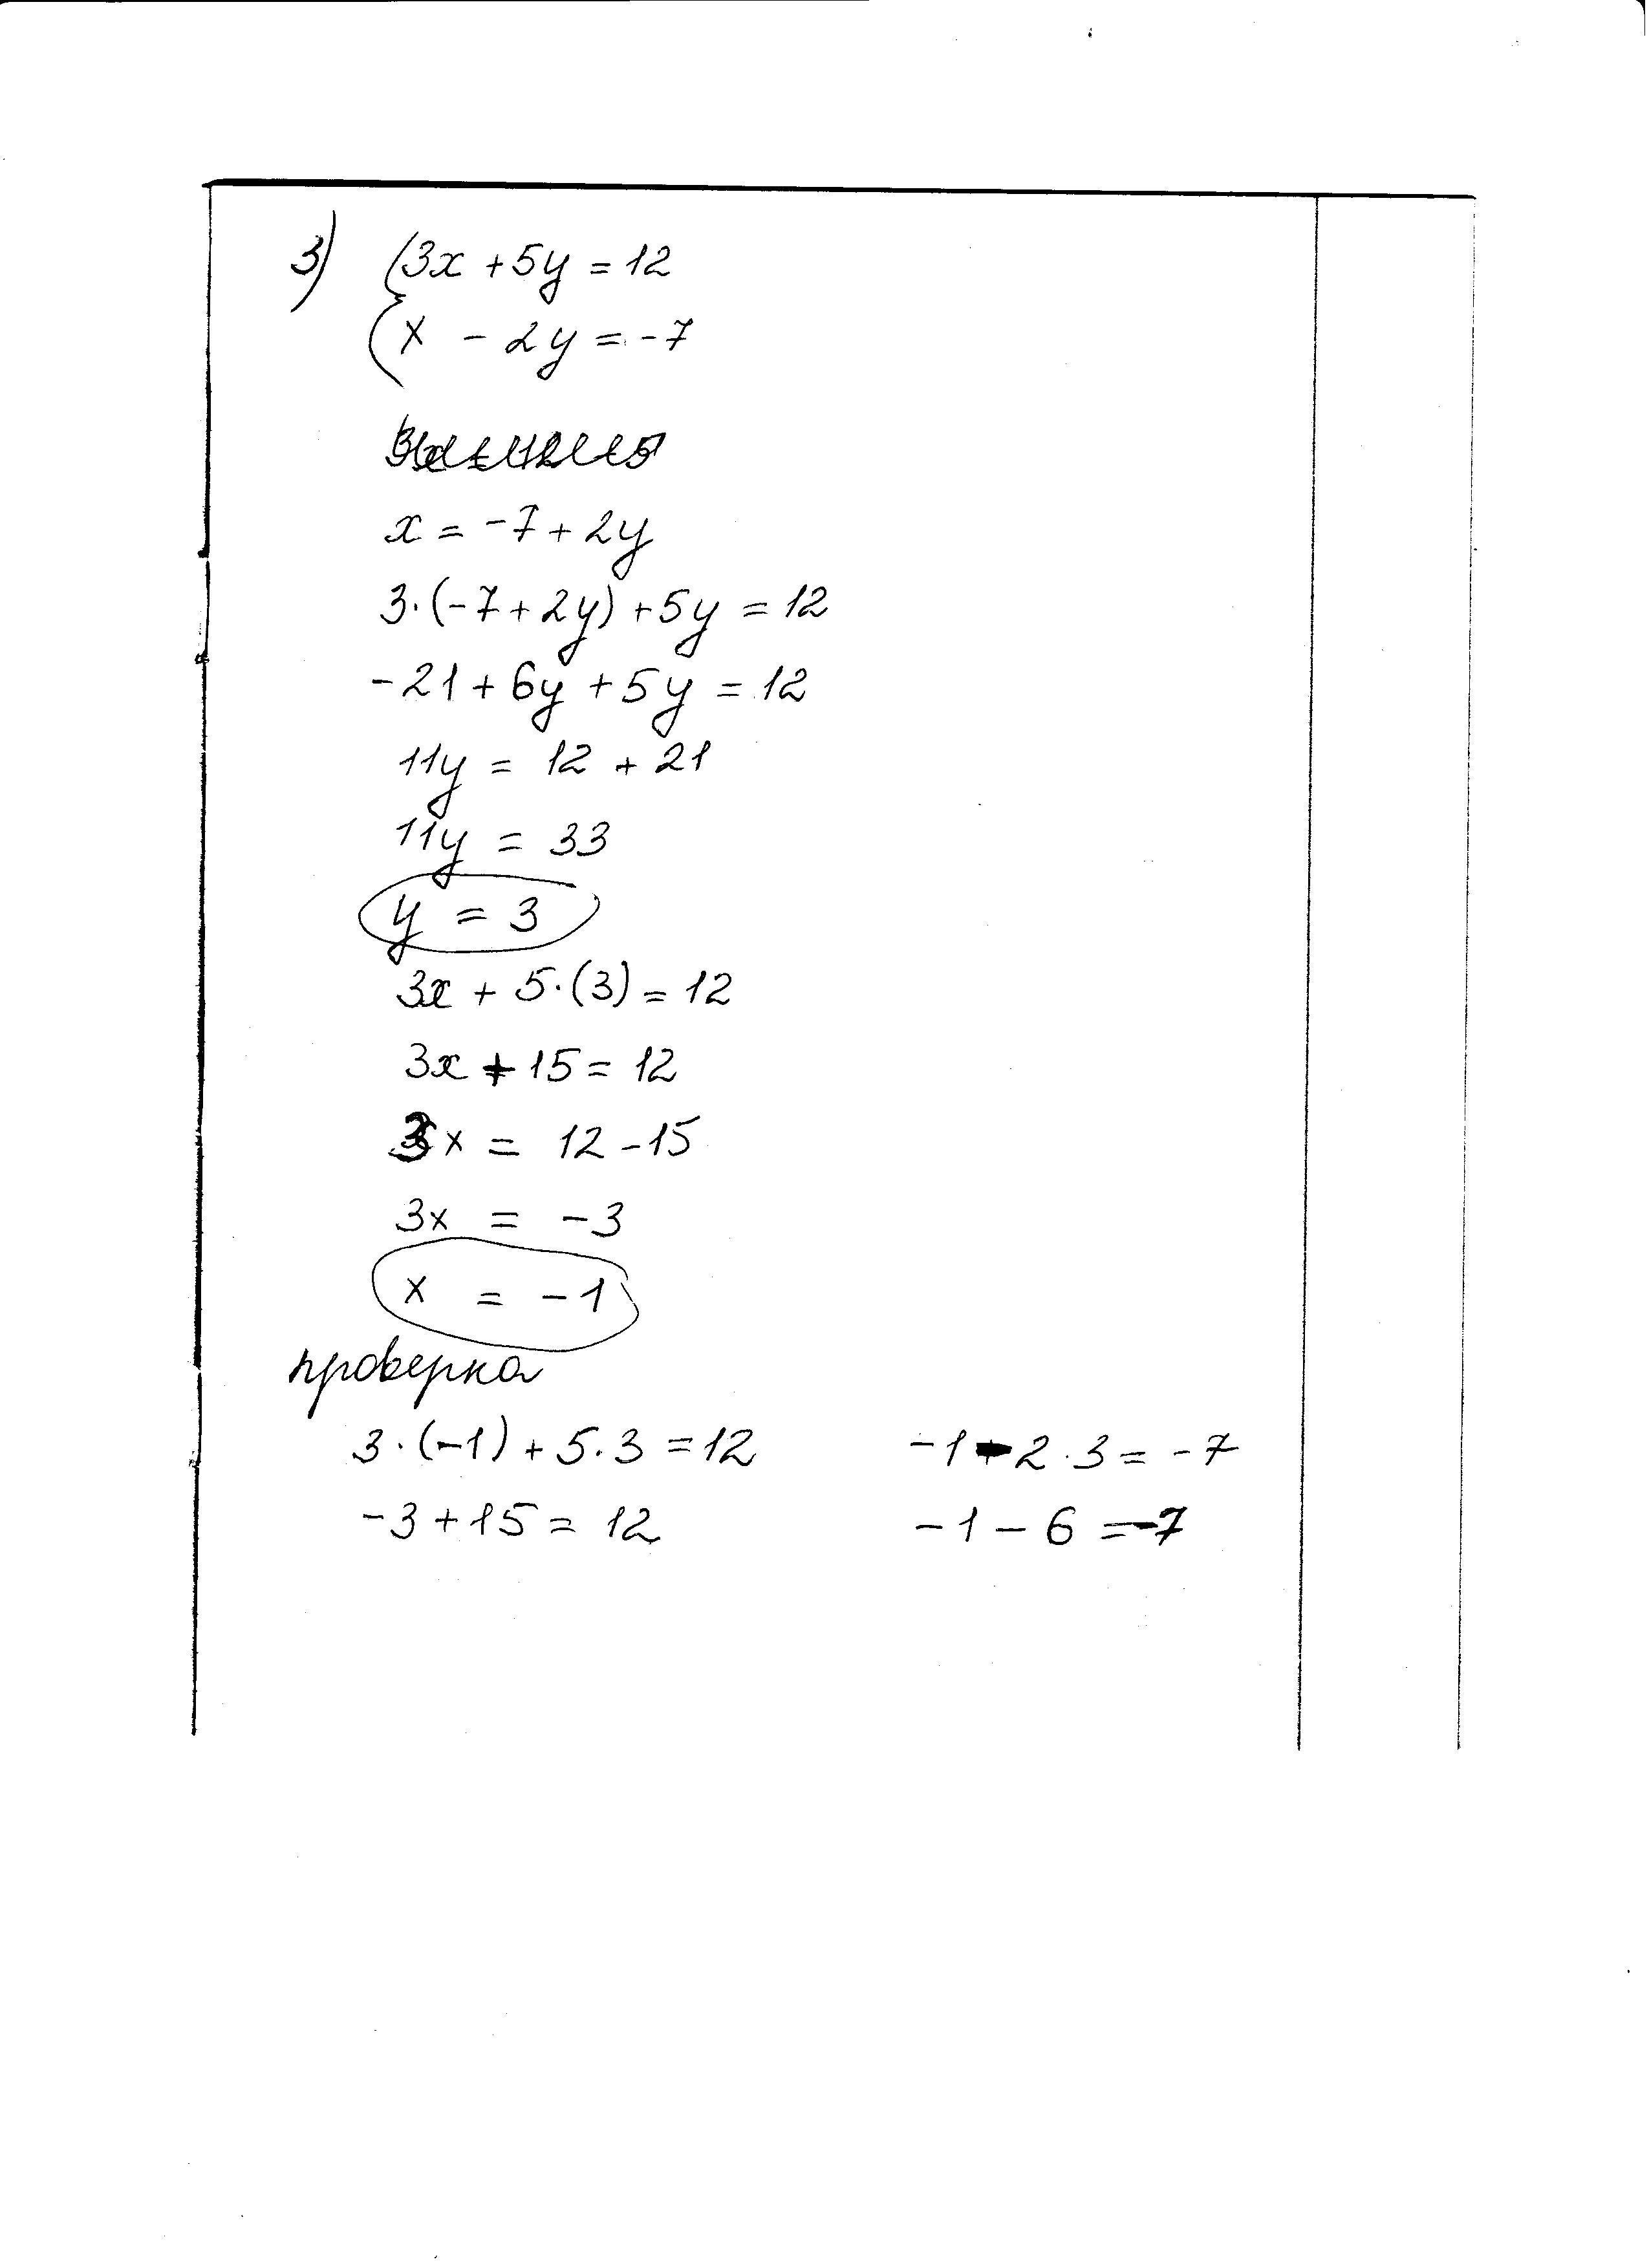 3) {3x + 5y = 12
{x - 2y = -7
x = -7 + 2y
3·(-7 + 2y) + 5y = 12
-21 + 6y + 5y = 12
11y = 12 + 21
11y = 33
y = 3
3x + 5·(3) = 12
3x + 15 = 12
3x = 12 - 15
3x = -3
x = -1
проверка
3·(-1) + 5·3 = 12
-3 + 15 = 12
-1 - 2·3 = -7
-1 - 6 = -7